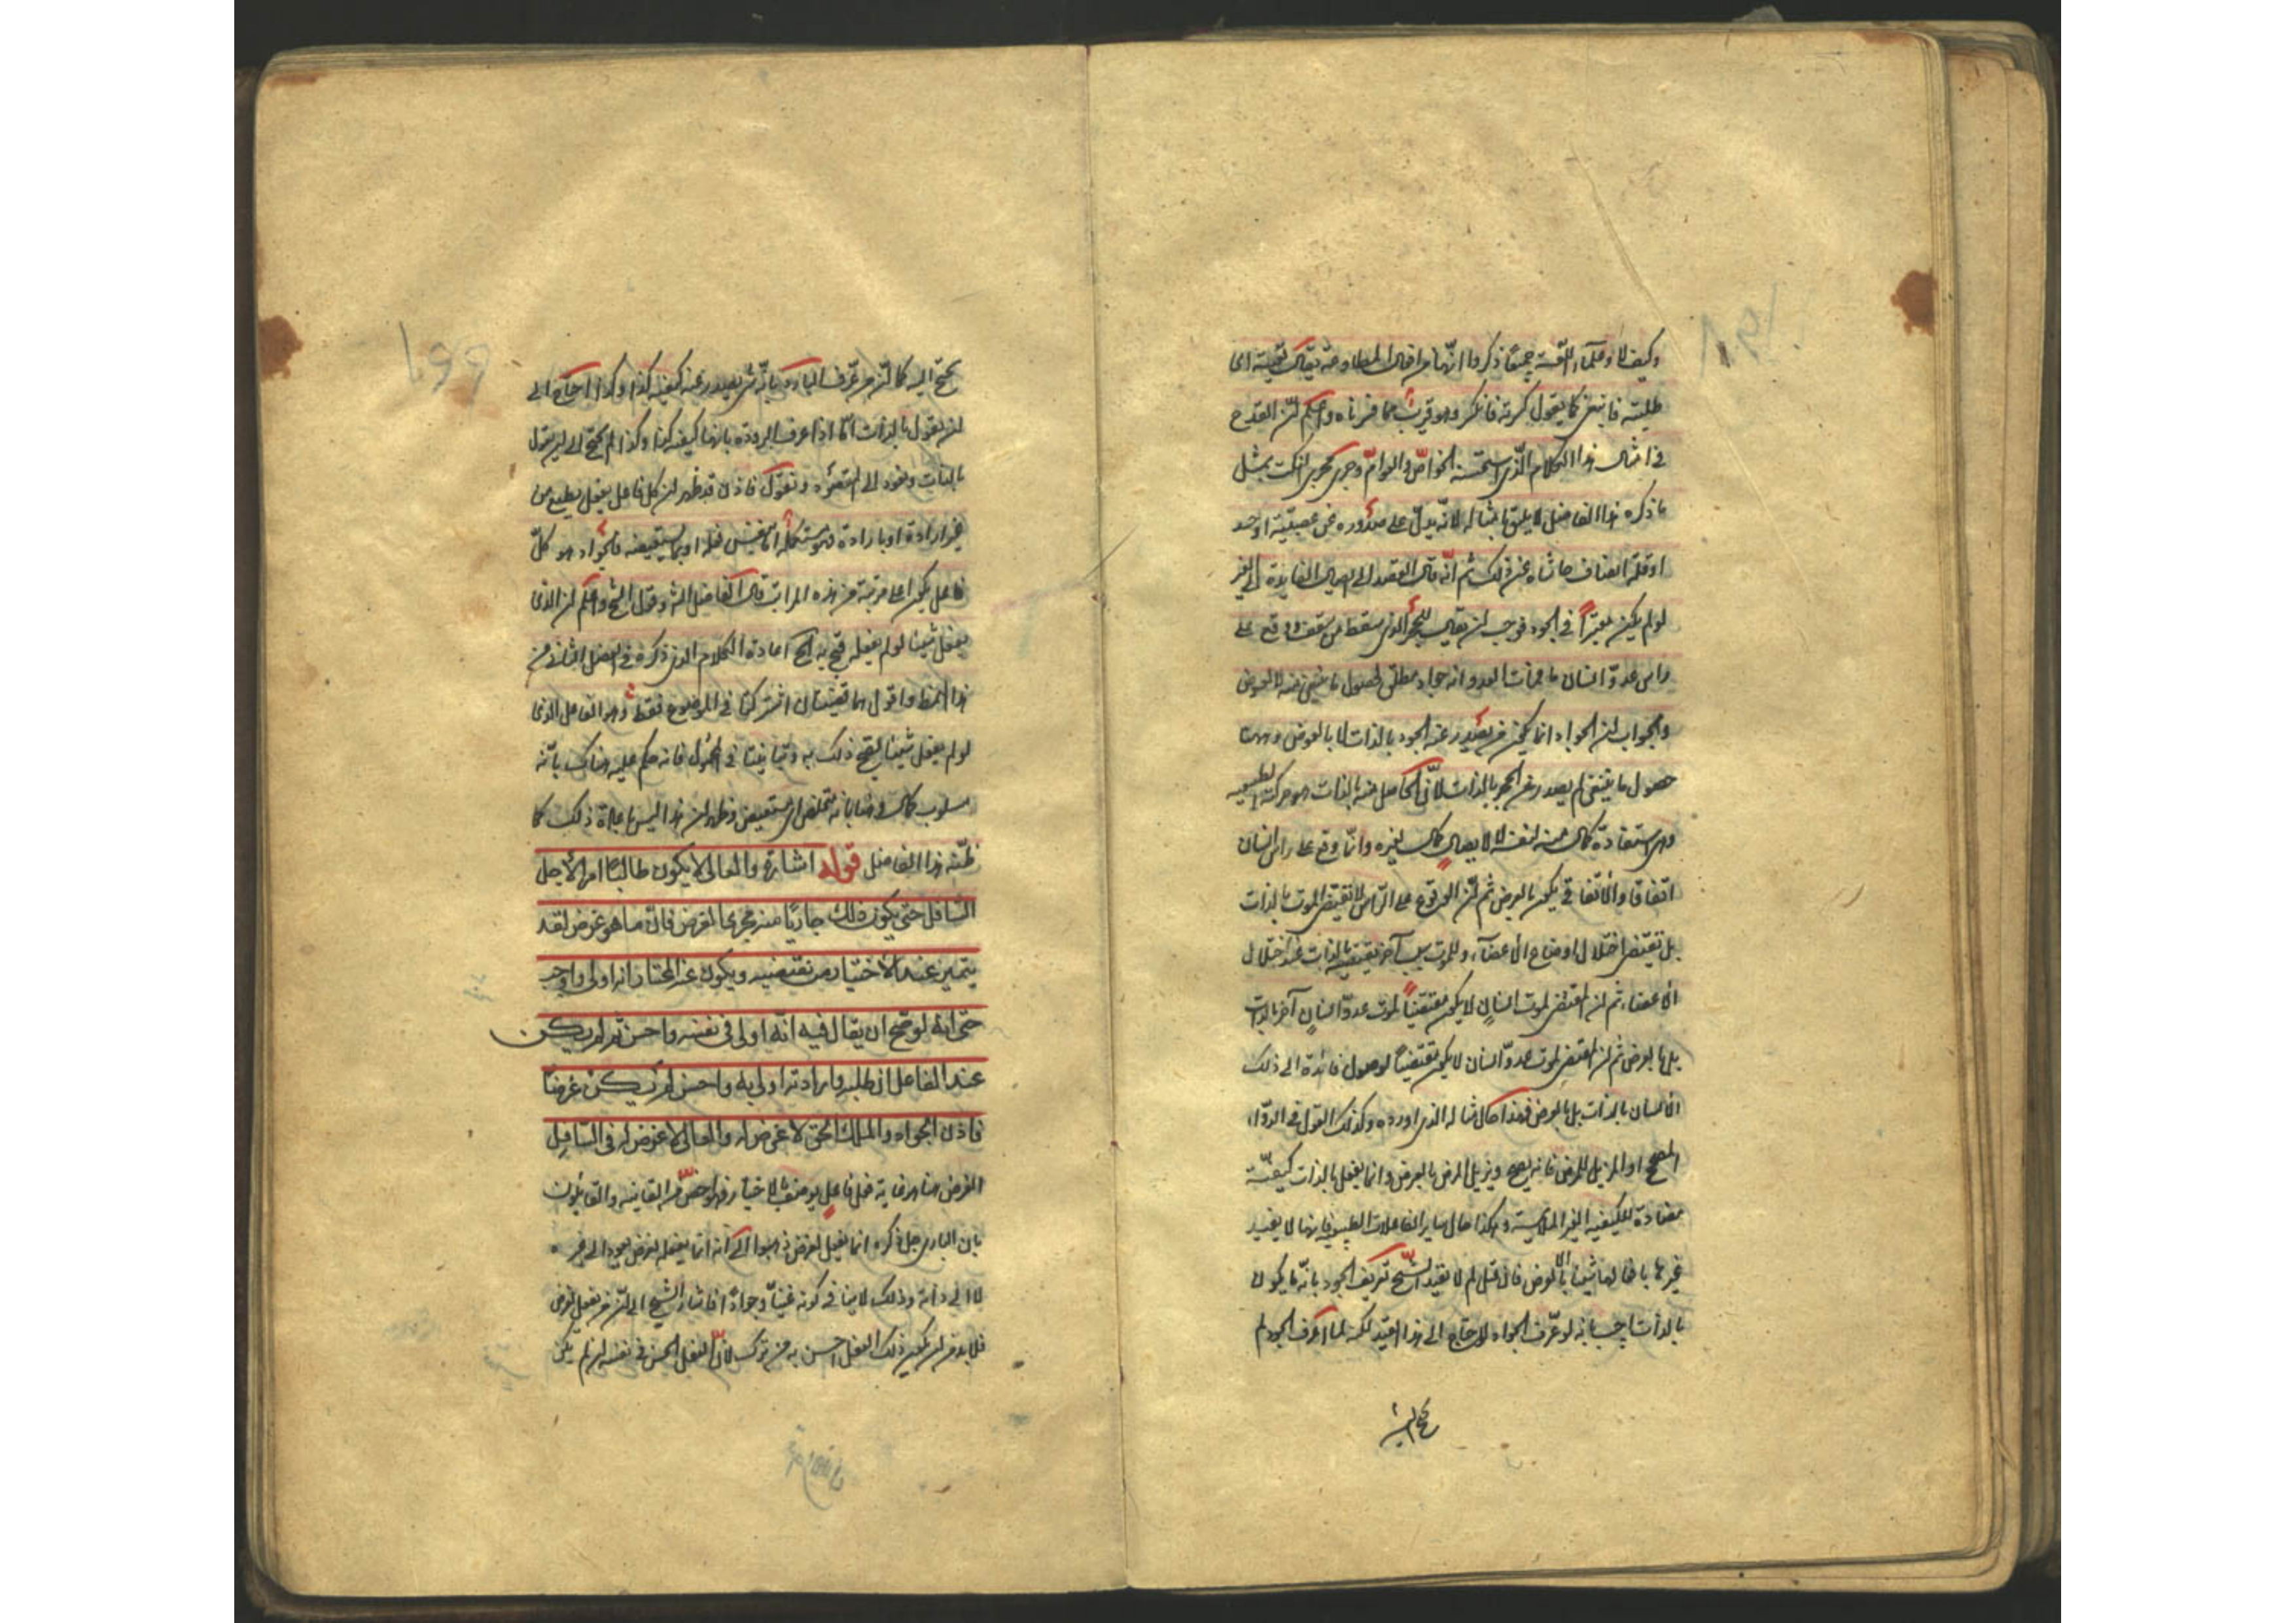 وكيف لا وعلماء اللغة جميعا ذكروا انها من افعال المطاوعة يقال بغيته اى
طلبته فانبغى كما يقول كسرته فانكسر وهو قريب مما فسرناه واعلم ان القدح
فى امثال هذا الكلام الذى استحسنه الخواص والعوام وجرى مجرى النكت بمثل
ما ذكره هذا الفاضل لا يليق بامثاله لانه يدل على صدوره عن عصبية او حسد
او قلة انصاف حاشاه عن ذلك ثم انه قال القصد الى ايصال الفايدة الى الغير
لو لم يكن معتبرا فى الجود فوجب ان يقال للحجر الذى سقط من سقف ووقع على
راس عدو انسان ما فمات العدو انه جواد مطلق لحصول ما ينبغى منه لا لعوض
والجواب ان الجواد انما يكون من يصدر عنه الجود بالذات لا بالعرض وههنا
حصول ما ينبغى لم يصدر عن الحجر بالذات لان الحاصل منه بالذات هو حركته الطبيعية
وهى استفادة كمال منه لنفسه لا ايصال كمال لغيره وانما وقع على راس انسان
اتفاقا والاتفاقى يكون بالعرض ثم ان الوقوع على الراس لا يقتضى الموت بالذات
بل يقتضى اختلال اوضاع الاعضاء وللموت سبب آخر يقتضيه بالذات عند اختلال
الاعضاء ثم ان المقتضى لموت انسان لا يكون مقتضيا لموت عدو انسان آخر بالذات
بل بالعرض ثم ان المقتضى لموت عدو انسان لا يكون مقتضيا لوصول فائدة الى ذلك
الانسان بالذات بل بالعرض فهذا حال مثاله الذى اورده وكذلك القول فى الدواء
المصح او المزيل للمرض فانه يصح ويزيل المرض بالعرض وانما يفعل بالذات كيفية
مضادة للكيفية الغير الملايمة وهكذا حال ساير الفاعلات الطبيعية فانها لا يفيد
غيرها بافعالها شيئا الا بالعرض فان قيل لم لا يقيد الشيخ تعريف الجود بانه ما يكون
بالذات اجيب بانه لو عرف الجواد لاحتاج الى هذا القيد لكنه لما عرف الجود لم
يحتج اليه
يحتج اليه كما ان من عرف البارد بانه شئ يصدر عنه كيفية كذا وكذا احتاج الى
ان يقول بالذات اما اذا عرف البرودة بانها كيفية كذا وكذا لم يحتج الى ان يقول
بالذات ونعود الى المقصود ونقول فاذن قد ظهر ان كل فاعل يفعل بطبع من
غير ارادة او بارادة فهو مستكمل اما بنفس فعله او بما يستعيضه فالجواد هو كل
فاعل يكون اعلى مرتبة من هذه المراتب قال الفاضل الشارح وقول الشيخ واعلم ان الذى
يفعل شيئا لو لم يفعله قبح به الخ اعادة الكلام الذى ذكره فى الفصل الثانى من
هذا النمط واقول هما قضيتان اشتركتا فى الموضوع فقط وهو الفاعل الذى
لو لم يفعل شيئا لقبح ذلك به وتباينتا فى المحمول فانه حكم عليه هناك بانه
مسلوب كمال وههنا بانه متخلص اى مستعيض وظهر ان هذا ليس باعادة ذلك كما
ظنه هذا الفاضل قوله اشارة والعالى لا يكون طالبا امرا لاجل
السافل حتى يكون ذلك جاريا منه مجرى الغرض فان ما هو غرض لقد
يتميز عند الاختيار من نقيضه ويكون عند المختار انه اولى واوجب
حتى انه لو صح ان يقال فيه انه اولى فى نفسه واحسن ثم لم يكن
عند الفاعل ان طلبه وارادته اولى به واحسن لم يكن غرضا
فاذن الجواد والملك الحق لا غرض له والعالى لا غرض له فى السافل
الغرض هنا هو غاية فعل فاعل يوصف بالاختيار فهو اخص من الغاية والقائلون
بان البارى جل ذكره انما يفعل لغرض ذهبوا الى انه انما يفعله لغرض يعود الى غيره
لا الى ذاته وذلك لا ينافى كونه غنيا وجوادا فاشار الشيخ الى ان من يفعل لغرض
فلا بد من ان يكون ذلك الفعل احسن به من تركه لان الفعل الحسن فى نفسه ان لم يكن